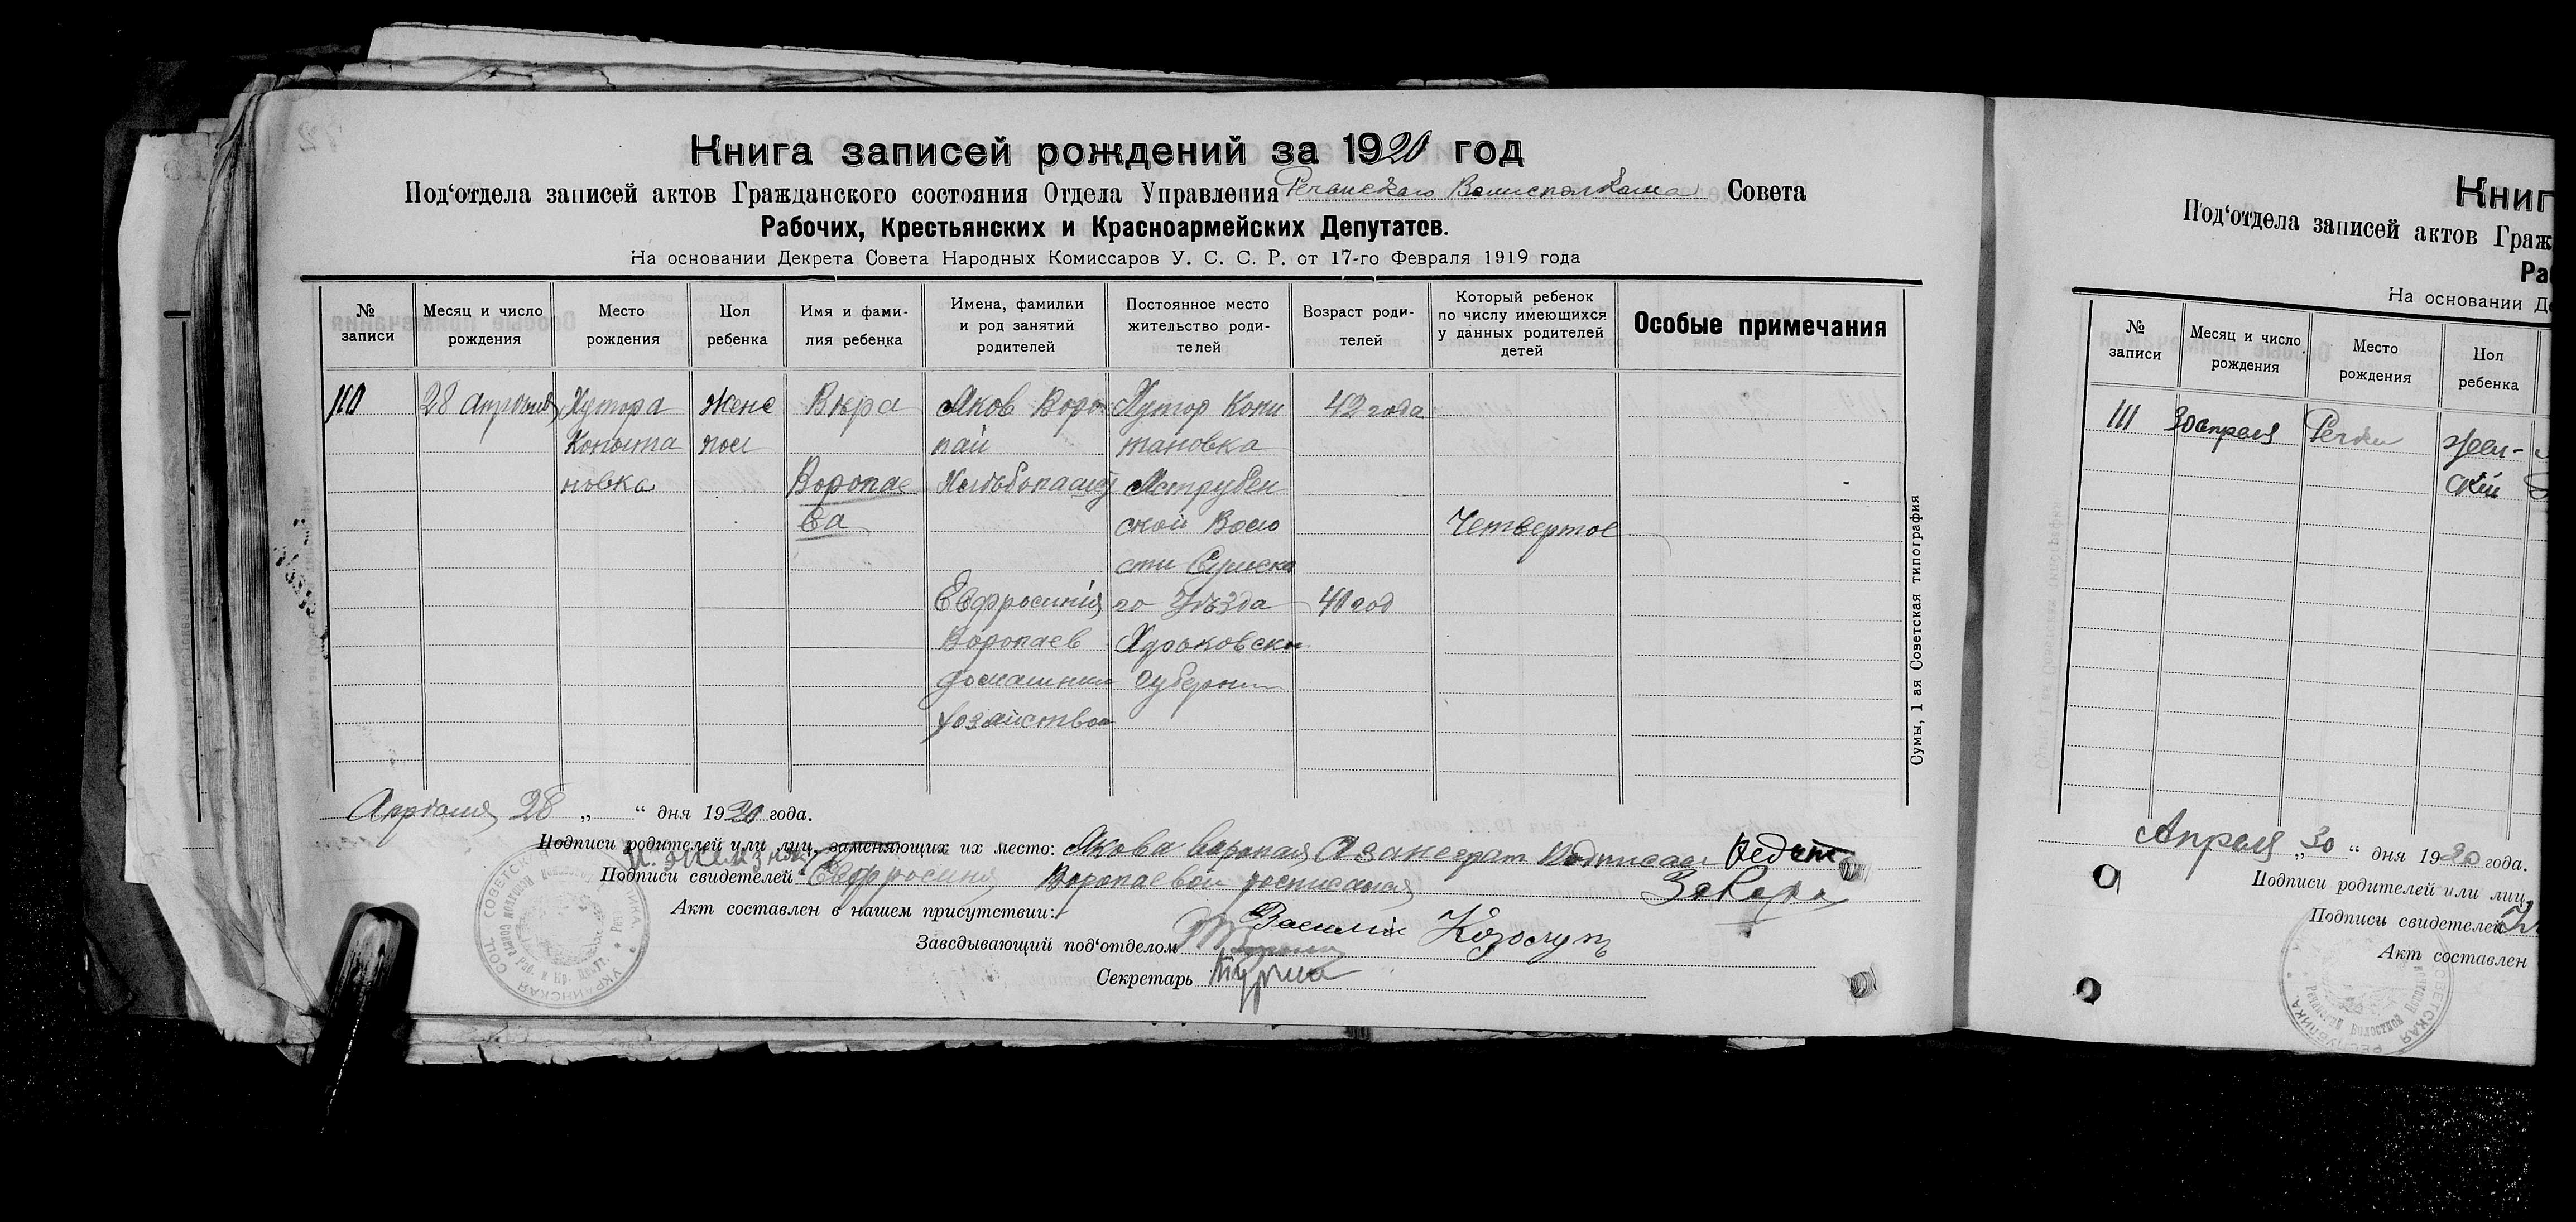 Книга записей рождений за 1920 год
Под‘отдела записей актов Гражданского состояния Отдела Управления Речанского Волисполкома Совета
Рабочих, Крестьянских и Красноармейских Депутатов.
На основании Декрета Совета Народных Комиссаров У. С. С. Р. от 17-го Февраля 1919 года
№ записи
Месяц и число рождения
Место рождения
Пол ребенка
Имя и фами-
лия ребенка
Имена, фамилии
и род занятий
родителей
Постоянное место
жительство роди-
телей
Возраст роди-
телей
Который ребенок
по числу имеющихся
у данных родителей
детей
Особые примечания
110
28 Апреля
Хутора
новка
женс
Вера
Воропае
ва
Яков Воро
пай
Хутор
тановка
ской Воло
сти Сумско
го Уезда
Харьковско
Губернии
42 года
Четвертое
Евфросиния
Воропаев
домашним
хозяйством
40 год
Апреля 28 „ “ дня 1920 года.
Подписи родителей или лиц, заменяющих их место: Якова Воропая
Подписи свидетелей Евфросиния Воропаевой
Акт составлен в нашем присутствии:
Василий
Заведывающий под‘отделом
Секретарь
Сумы, 1 ая Советская типография
Книг
Под‘отдела записей актов Граж
Ра
На основании Де
№ записи
Месяц и число рождения
Место рождения
Пол ребенка
111
30 апреля
Речки
жен-
ский
Апреля „30 “ дня 1920 года.
Подписи родителей или лиц,
Подписи свидетелей
Акт составлен